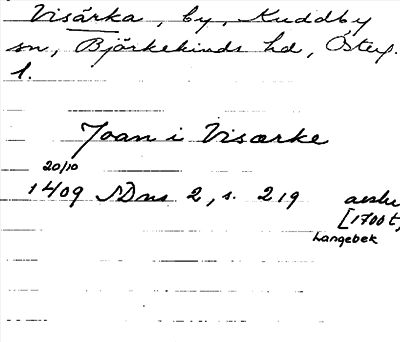 Visärka, by, Kuddby
sn, Björkekinds hd, Österg.
l.
Joan i Visærke
20/10
1409 SDns 2, s. 219
[1700 t
Langebek